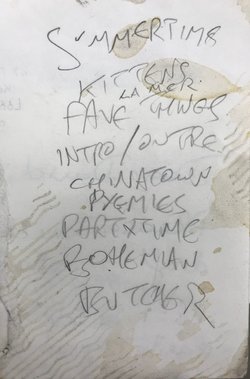 SUMMERTIME
KITTENS
LA MER
FAVE THINGS
INTRO/OUTRE
CHINATOWN
PYGMIES
PARTXTIME
BOHEMIAN
BUTCHER